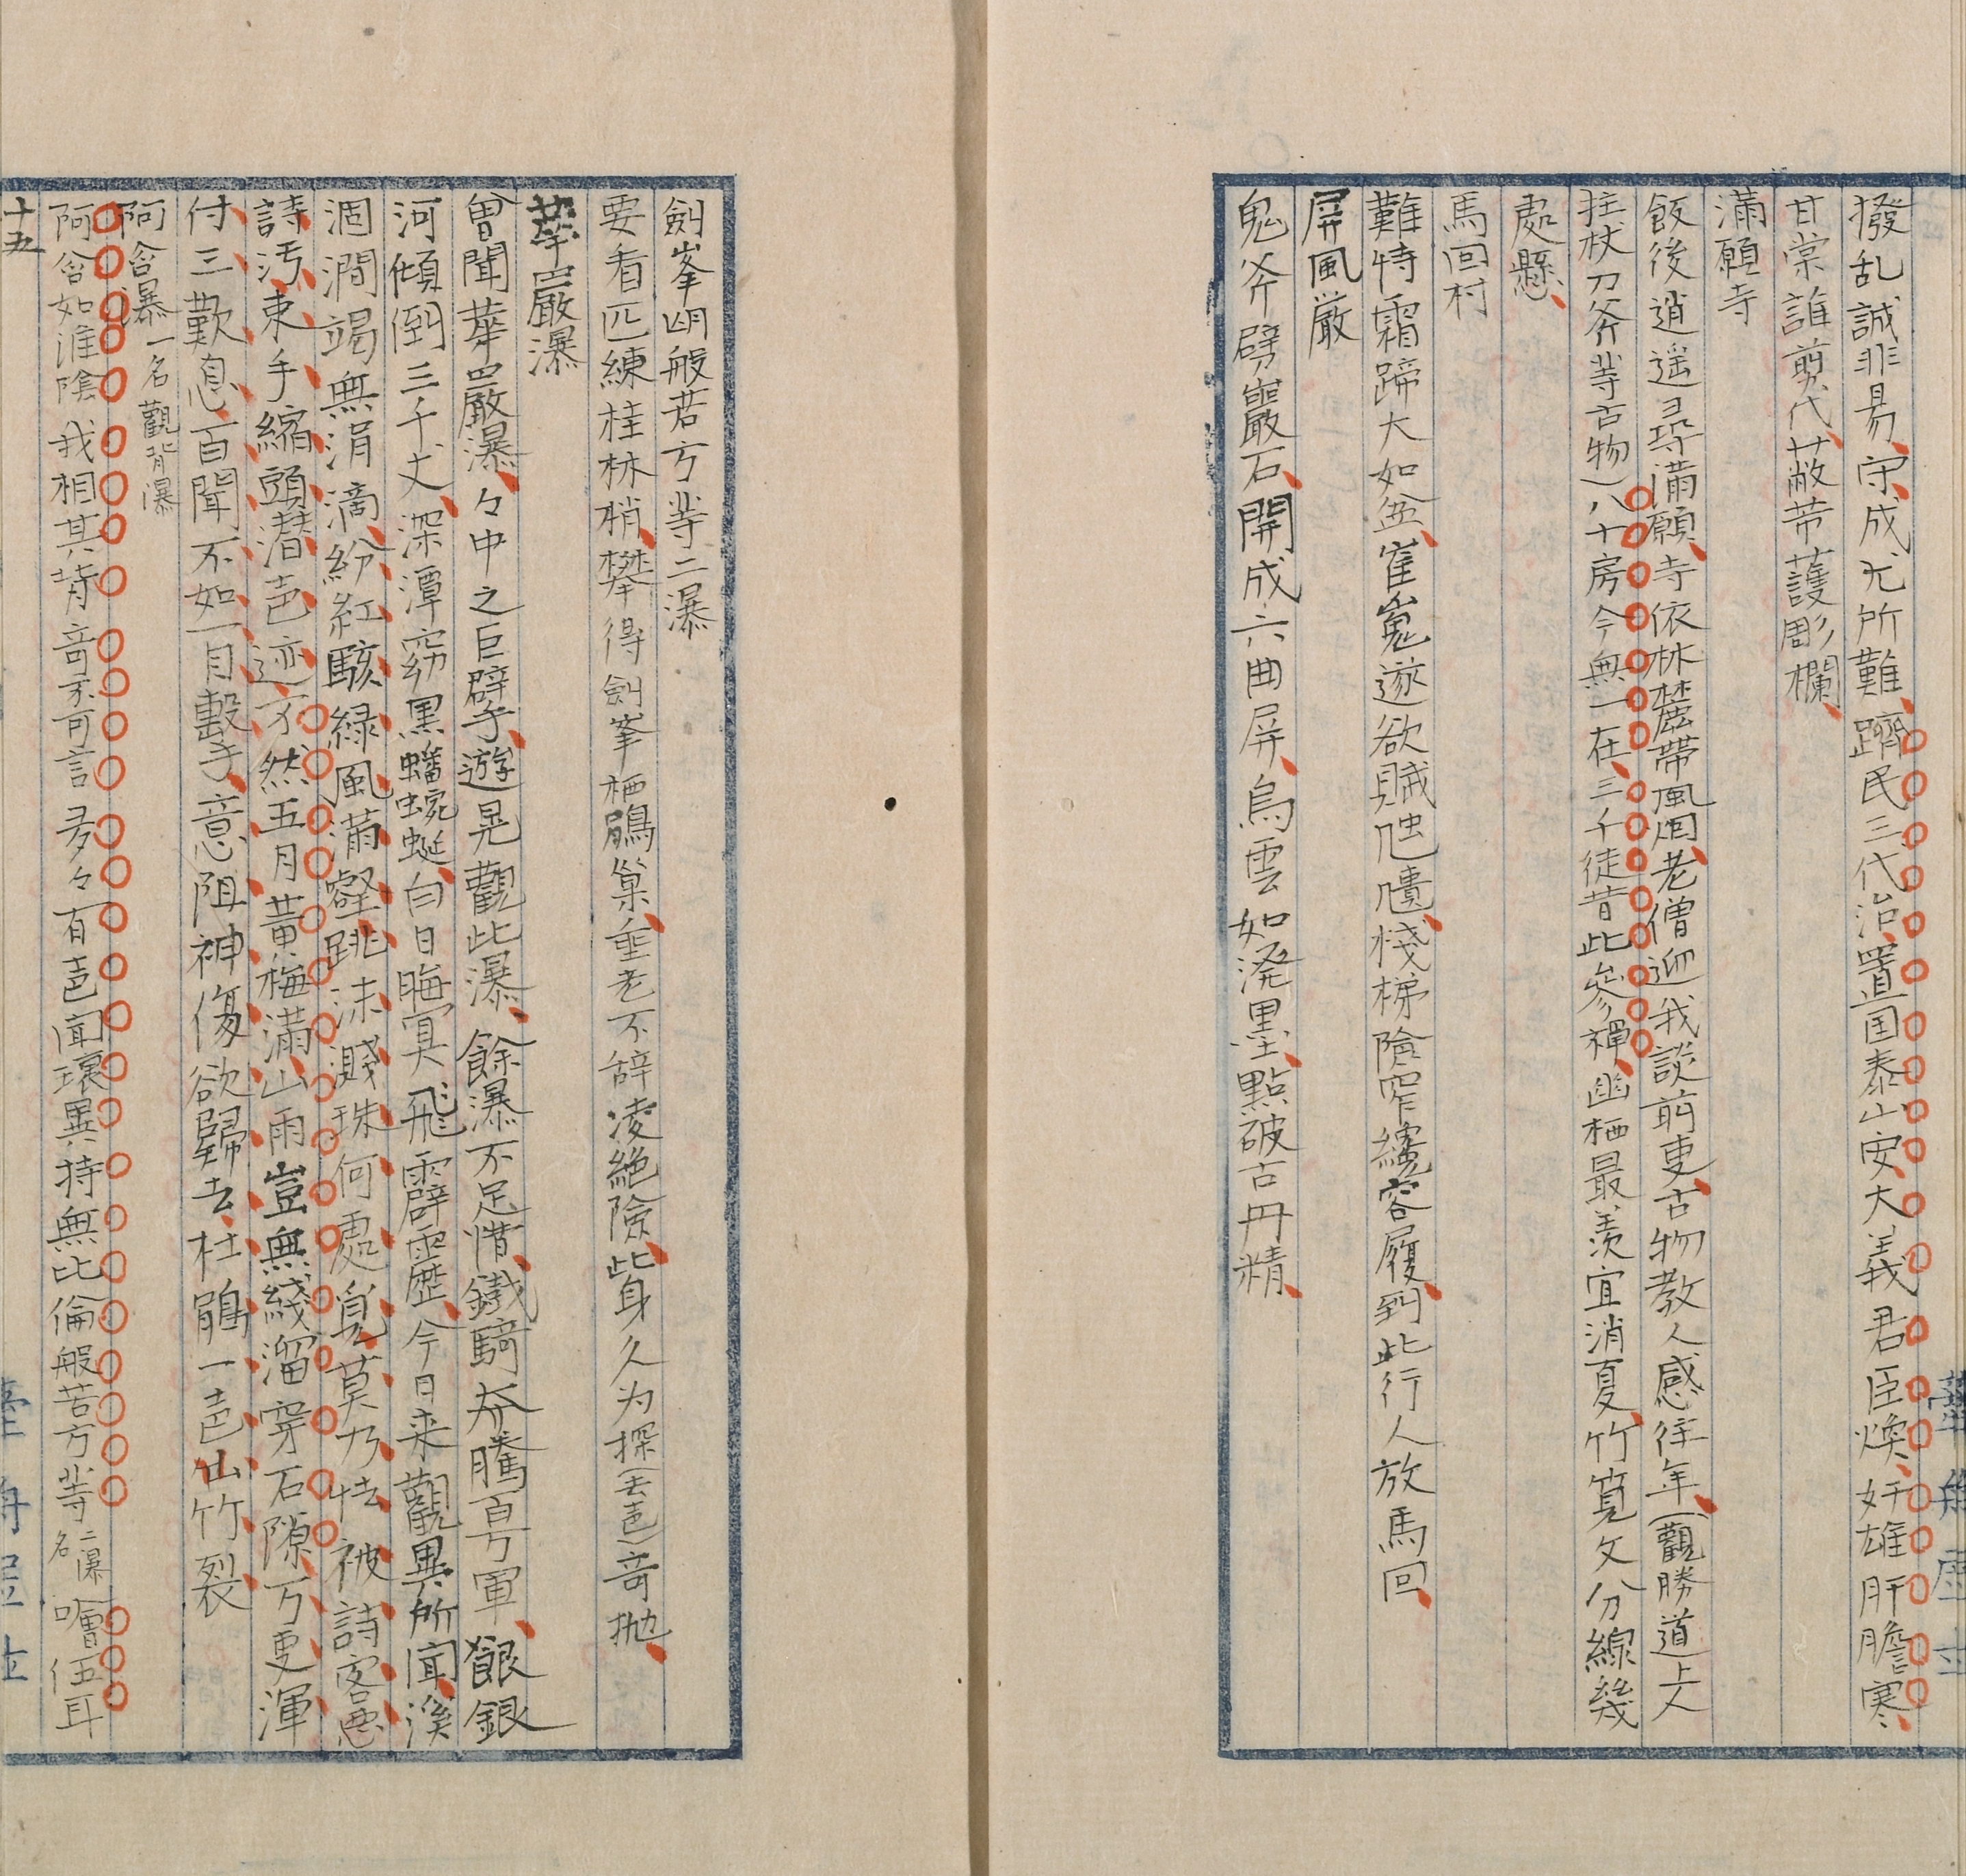 撥乱誠非易守成尤所難躋民三代治置国泰山安大義君臣煥奸雄肝膽寒
甘棠誰剪代蔽芾護彫欄
滿願寺
飯後逍遥尋滿願寺依林麓帶風烟老僧迎我談前吏古物教人感往年(觀勝道上人
拄杖刀斧等古物)八十房今無一在三千徒昔此參禪幽栖最羨宜消夏竹筧文分線幾
處懸
馬回村
難特霜蹄大如盆崔嵬遂欲賊虺隤棧梯險窄纔容履到此行人放馬回
屏風巌
鬼斧劈巖石開成六曲屏烏雲如溌墨點破古丹精
劍峯望般若方等二瀑
要看匹練桂林梢攀得劍峯栖鶻巢垂老不辞凌絶險此身久为探(去声)奇拋
華嚴瀑
曾聞華嚴瀑々中之巨擘遊晃觀此瀑餘瀑不足惜鐵騎奔騰百万軍銀
河傾倒三千丈深潭窈黒蟠蜿蜒白日晦冥飛霹靂今日来觀異所聞溪
涸澗竭無涓滴紛紅駭緑風滿壑跳沫濺珠何處覓莫乃怯被詩客悪
詩汚束手縮頭潜声迹不然五月黄梅滿山雨豈無綫溜穿石隙万吏渾
付三歎息百聞不如一目擊手意阻神傷欲歸去杜鵑一声山竹裂
阿含瀑一名觀背瀑
阿含如淮陰我相其背奇不可言多々有声聞瓌異特無比倫般苦方等二瀑名噲伍耳
十五